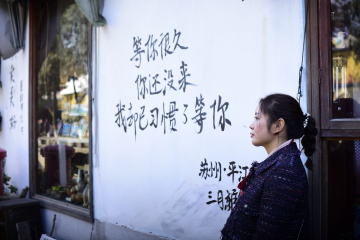 等你很久
你还没来
我却已习惯了等你
苏州·平江
三月